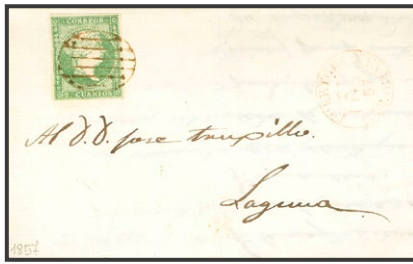 CORREOS
CUARTOS
Al D. D. Jose Truxillo.
Laguna
1857